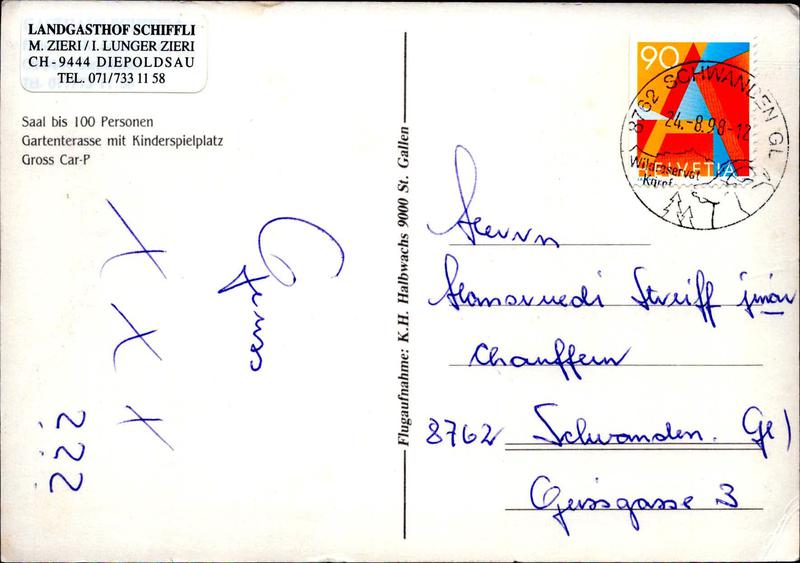 LANDGASTHOF SCHIFFLI
M. ZIERI / I. LUNGER ZIERI
CH - 9444 DIEPOLDSAU
TEL. 071/733 11 58
Saal bis 100 Personen
Gartenterasse mit Kinderspielplatz
Gross Car-P
Flugaufnahme: K.H. Halbwachs 9000 St. Gallen
90
HELVETIA
8762 SCHWANDEN GL
24.-8.98-12
Wildreservat
Kärpf
Herrn
Hansruedi Streiff
Chauffeur
8762 Schwanden. Gl)
Geissgasse 3